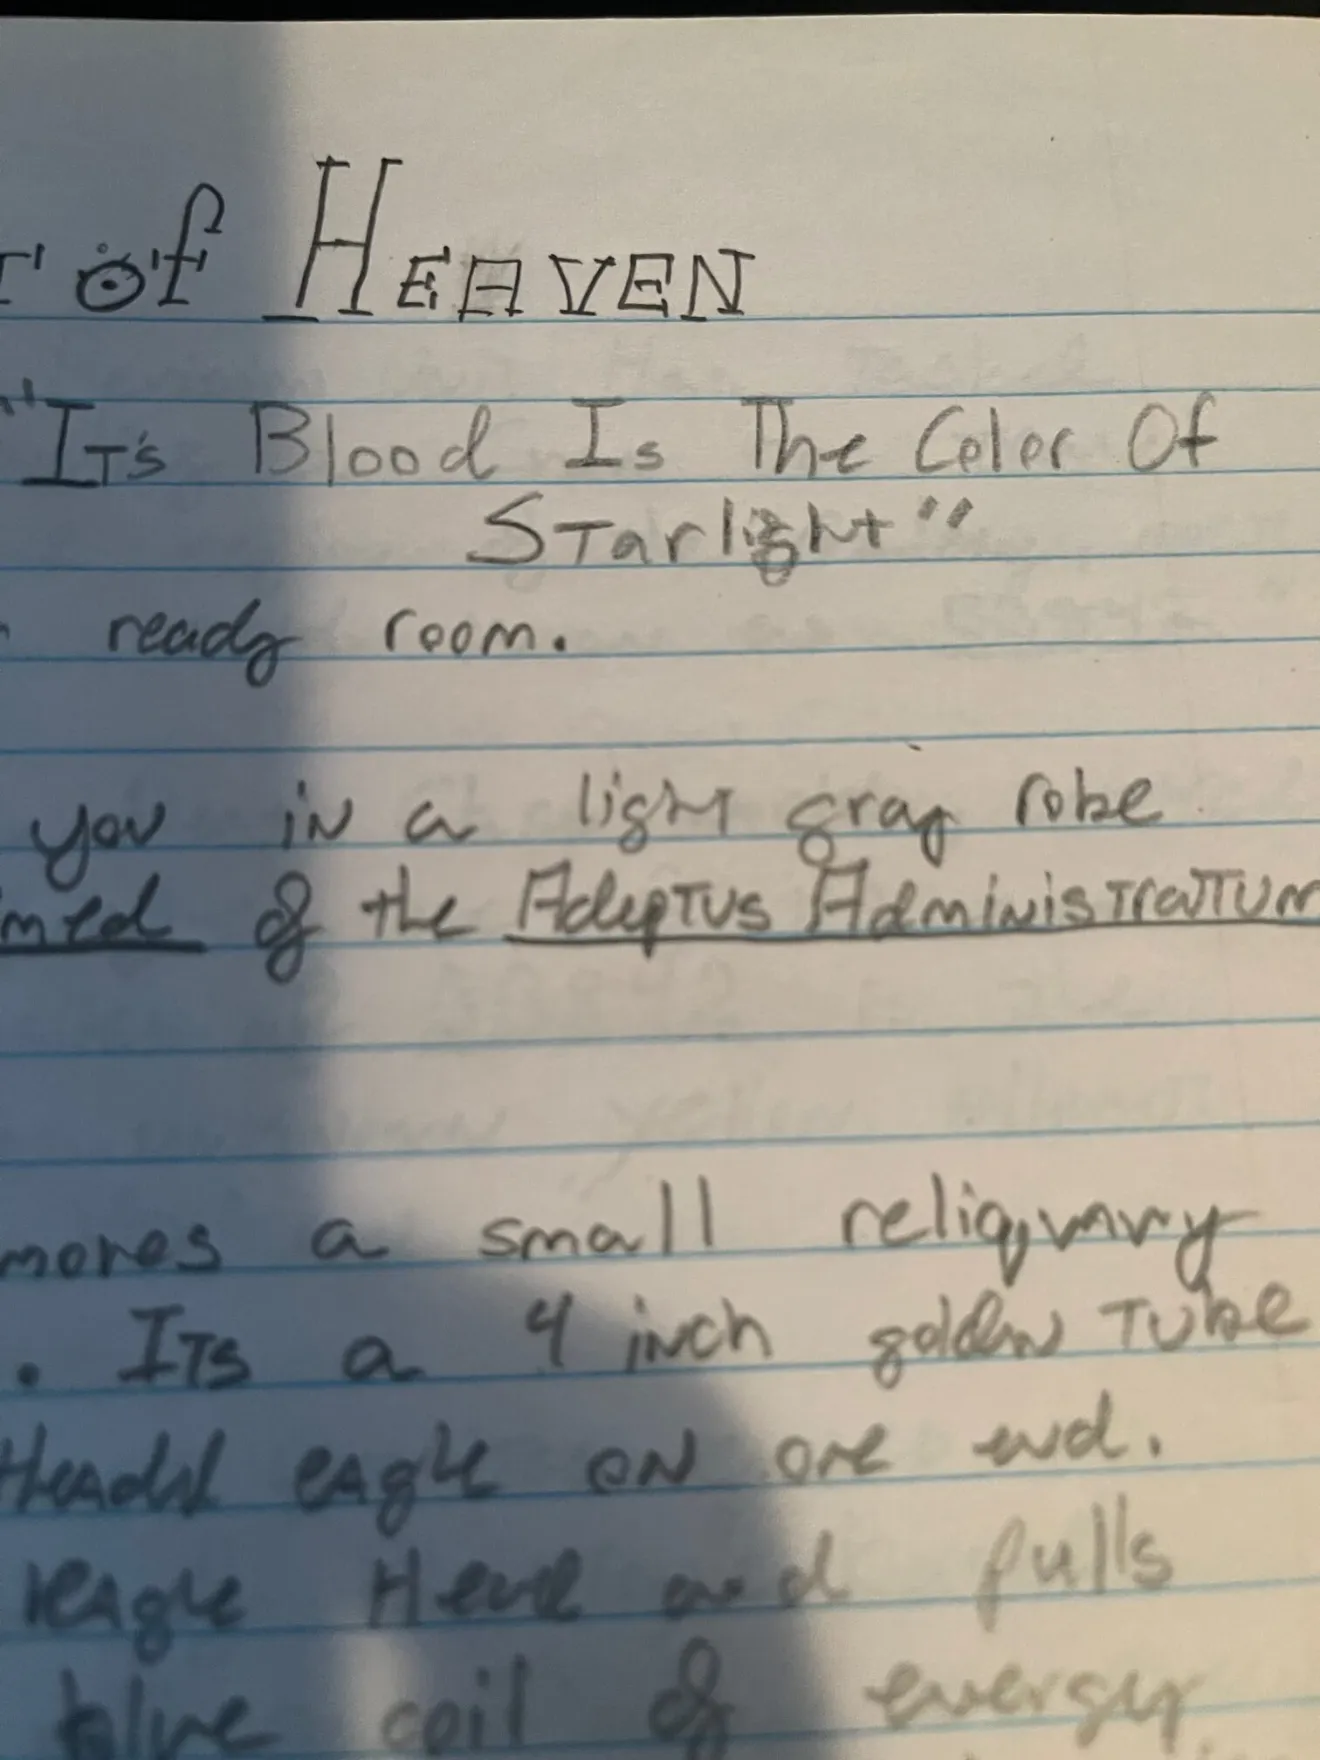 of HEAVEN
"IT's Blood Is The Color Of
STarlight"
ready room.
you in a light gray robe
of the AdepTUS AdminisTraTUM
a small reliquary
. ITs a 4 inch golden TUbe
Headed eagle on one end.
eagle Head and pulls
blue coil of energy